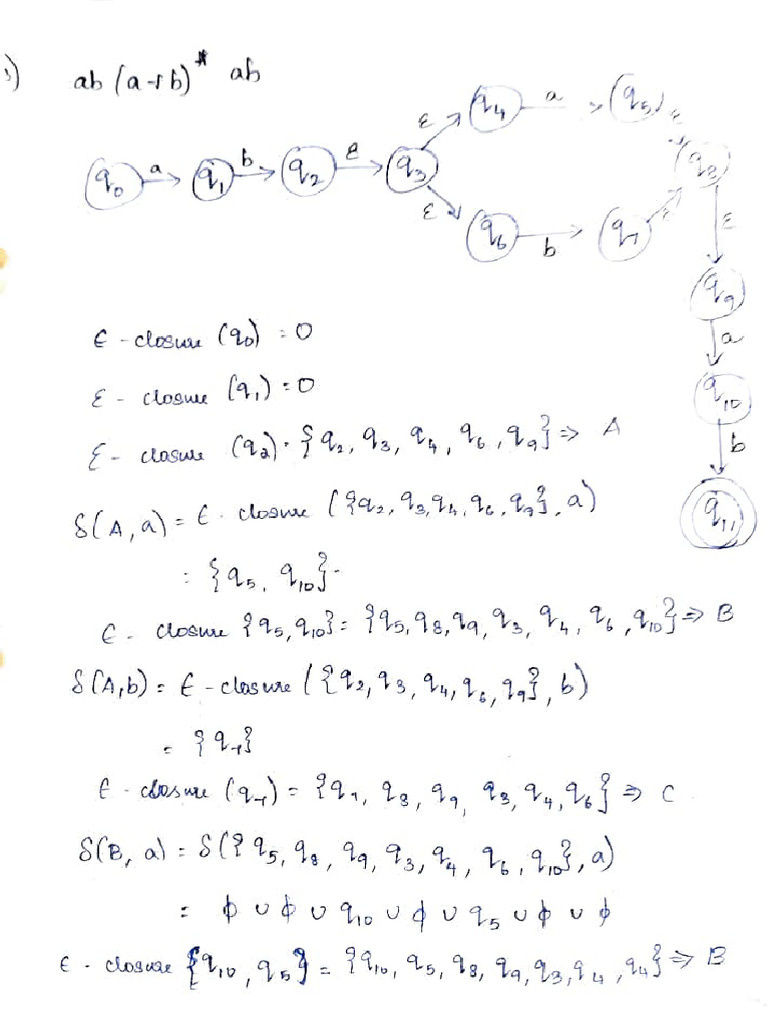 ab (a+b)* ab
q0 a q1 b q2 ε q3 ε q4 a q5 ε q8
ε q6 b q7 ε
ε
q9
a
q10
b
q11
ε - closure (q0) = 0
ε - closure (q1) = 0
ε - closure (q2) = {q2, q3, q4, q6, q9} ⇒ A
δ(A, a) = ε - closure ({q2, q3, q4, q6, q9}, a)
= {q5, q10}
ε - closure {q5, q10} = {q5, q8, q9, q3, q4, q6, q10} ⇒ B
δ(A, b) = ε - closure ({q2, q3, q4, q6, q9}, b)
= {q7}
ε - closure (q7) = {q7, q8, q9, q3, q4, q6} ⇒ C
δ(B, a) = δ({q5, q8, q9, q3, q4, q6, q10}, a)
= ϕ ∪ ϕ ∪ q10 ∪ ϕ ∪ q5 ∪ ϕ ∪ ϕ
ε - closure {q10, q5} = {q10, q5, q8, q9, q3, q4, q4} ⇒ B